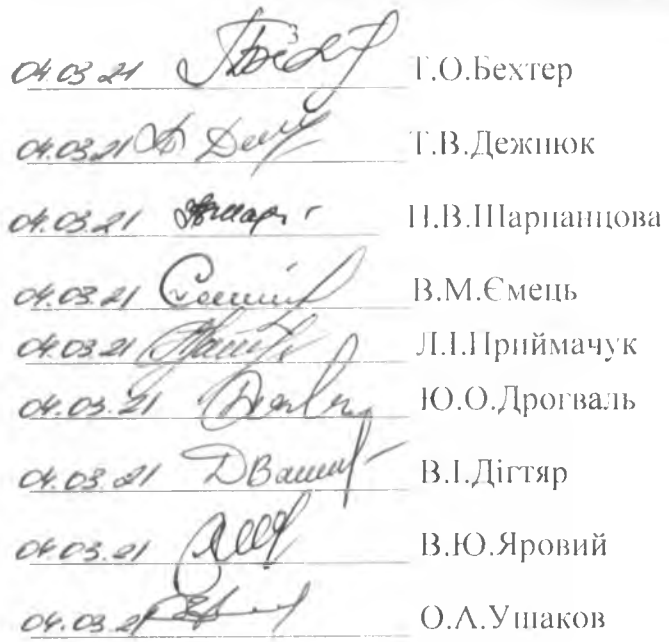 04.03.21 Т.О.Бехтер
04.03.21 Т.В.Дежнюк
04.03.21 Н.В.Шарпанцова
04.03.21 В.М.Ємець
04.03.21 Л.І.Приймачук
04.03.21 Ю.О.Дрогваль
04.03.21 В.І.Дігтяр
04.03.21 В.Ю.Яровий
04.03.21 О.А.Ушаков